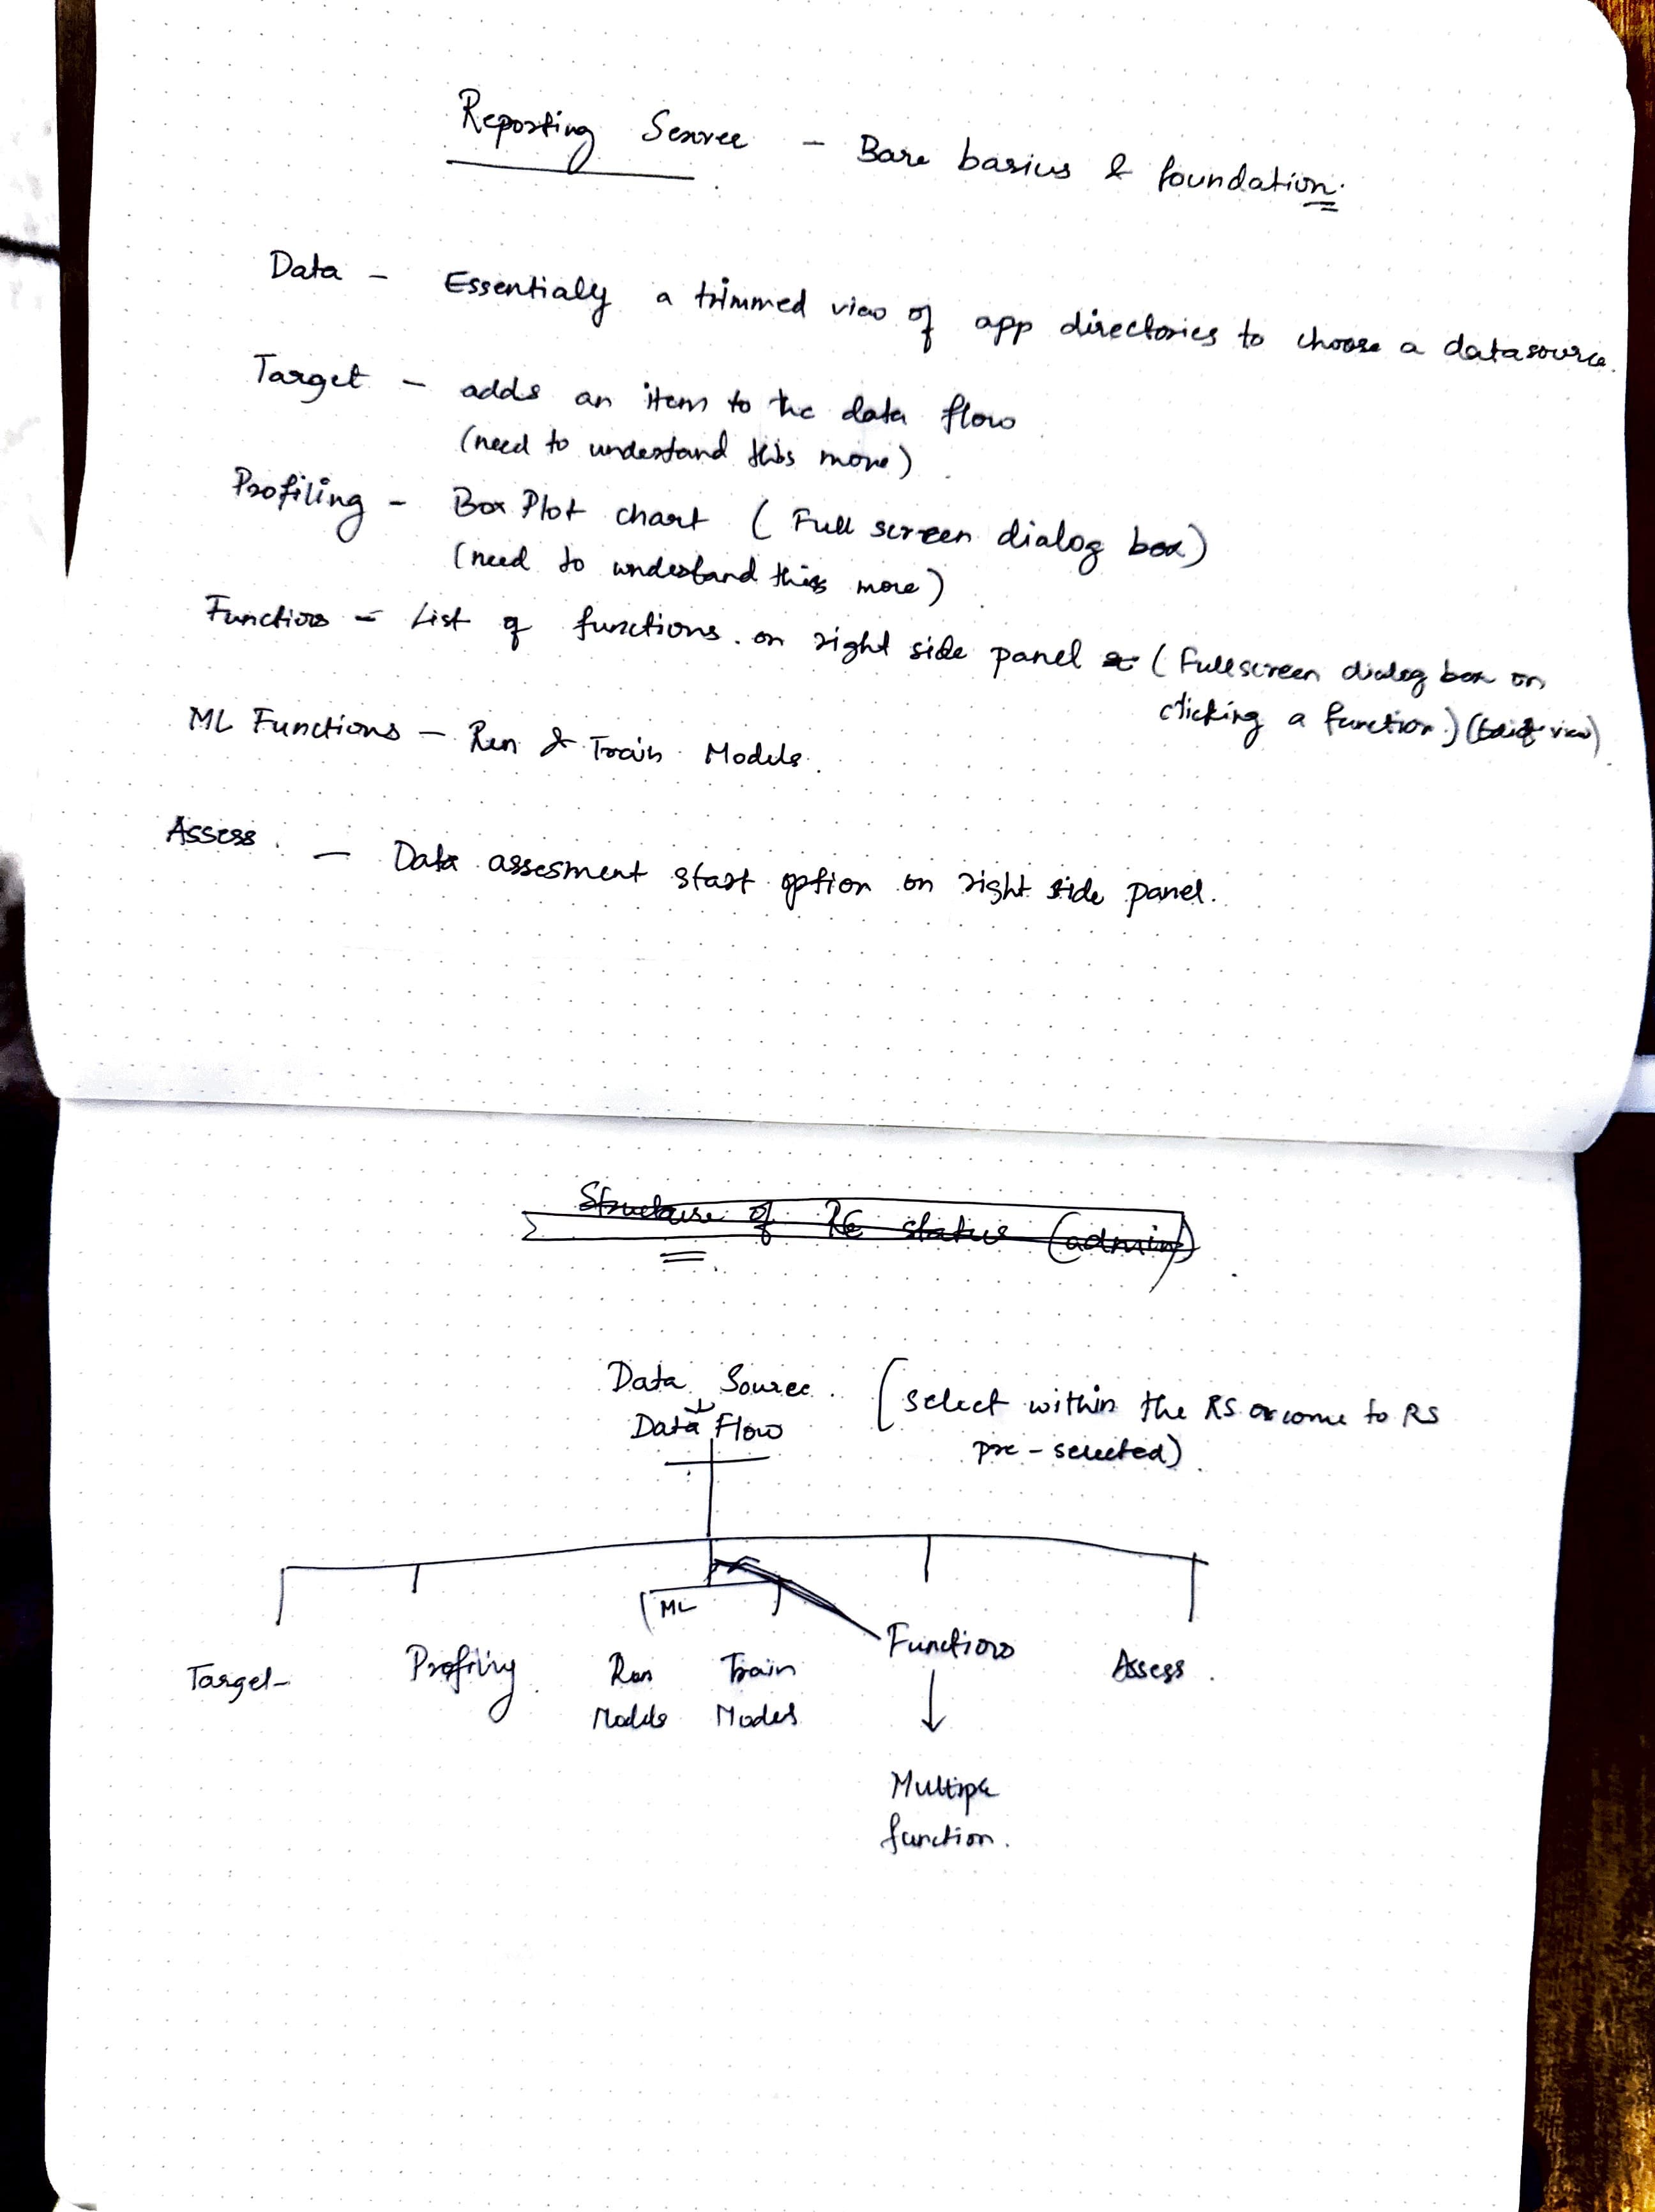 Reporting Service - Bare basics & foundation.
Data - Essentialy a trimmed view of app directories to choose a datasource.
Target - adds an item to the data flow
(need to understand this more)
Profiling - Box Plot chart (Full screen dialog box)
(need to understand this more)
Functions - List of functions. on right side panel (Fullscreen dialog box on
clicking a function.) (view)
ML Functions - Run & Train Models.
Assess. - Data assesment start option on right side panel.
Structure of status (admin)
Data Source. (select within the RS or come to RS
Data Flow
pre-selected)
ML
Target Profiling. Run Train Functions Assess.
Models Models
Multiple
function.